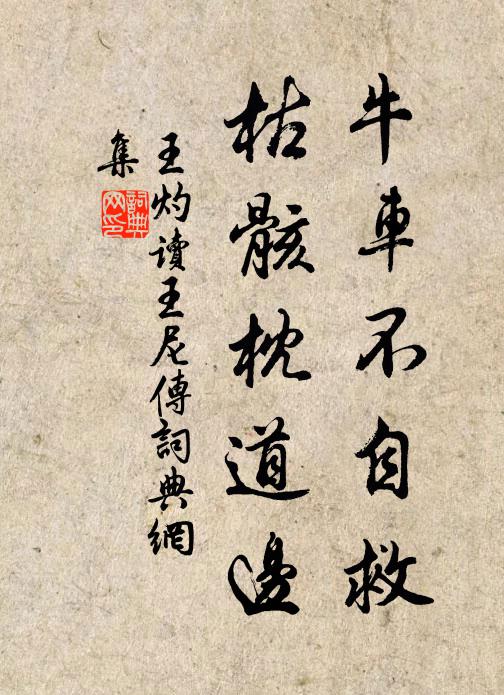 牛車不自救
枯骸枕道邊
王灼讀王尼傳詞典網
集
詞典
网印